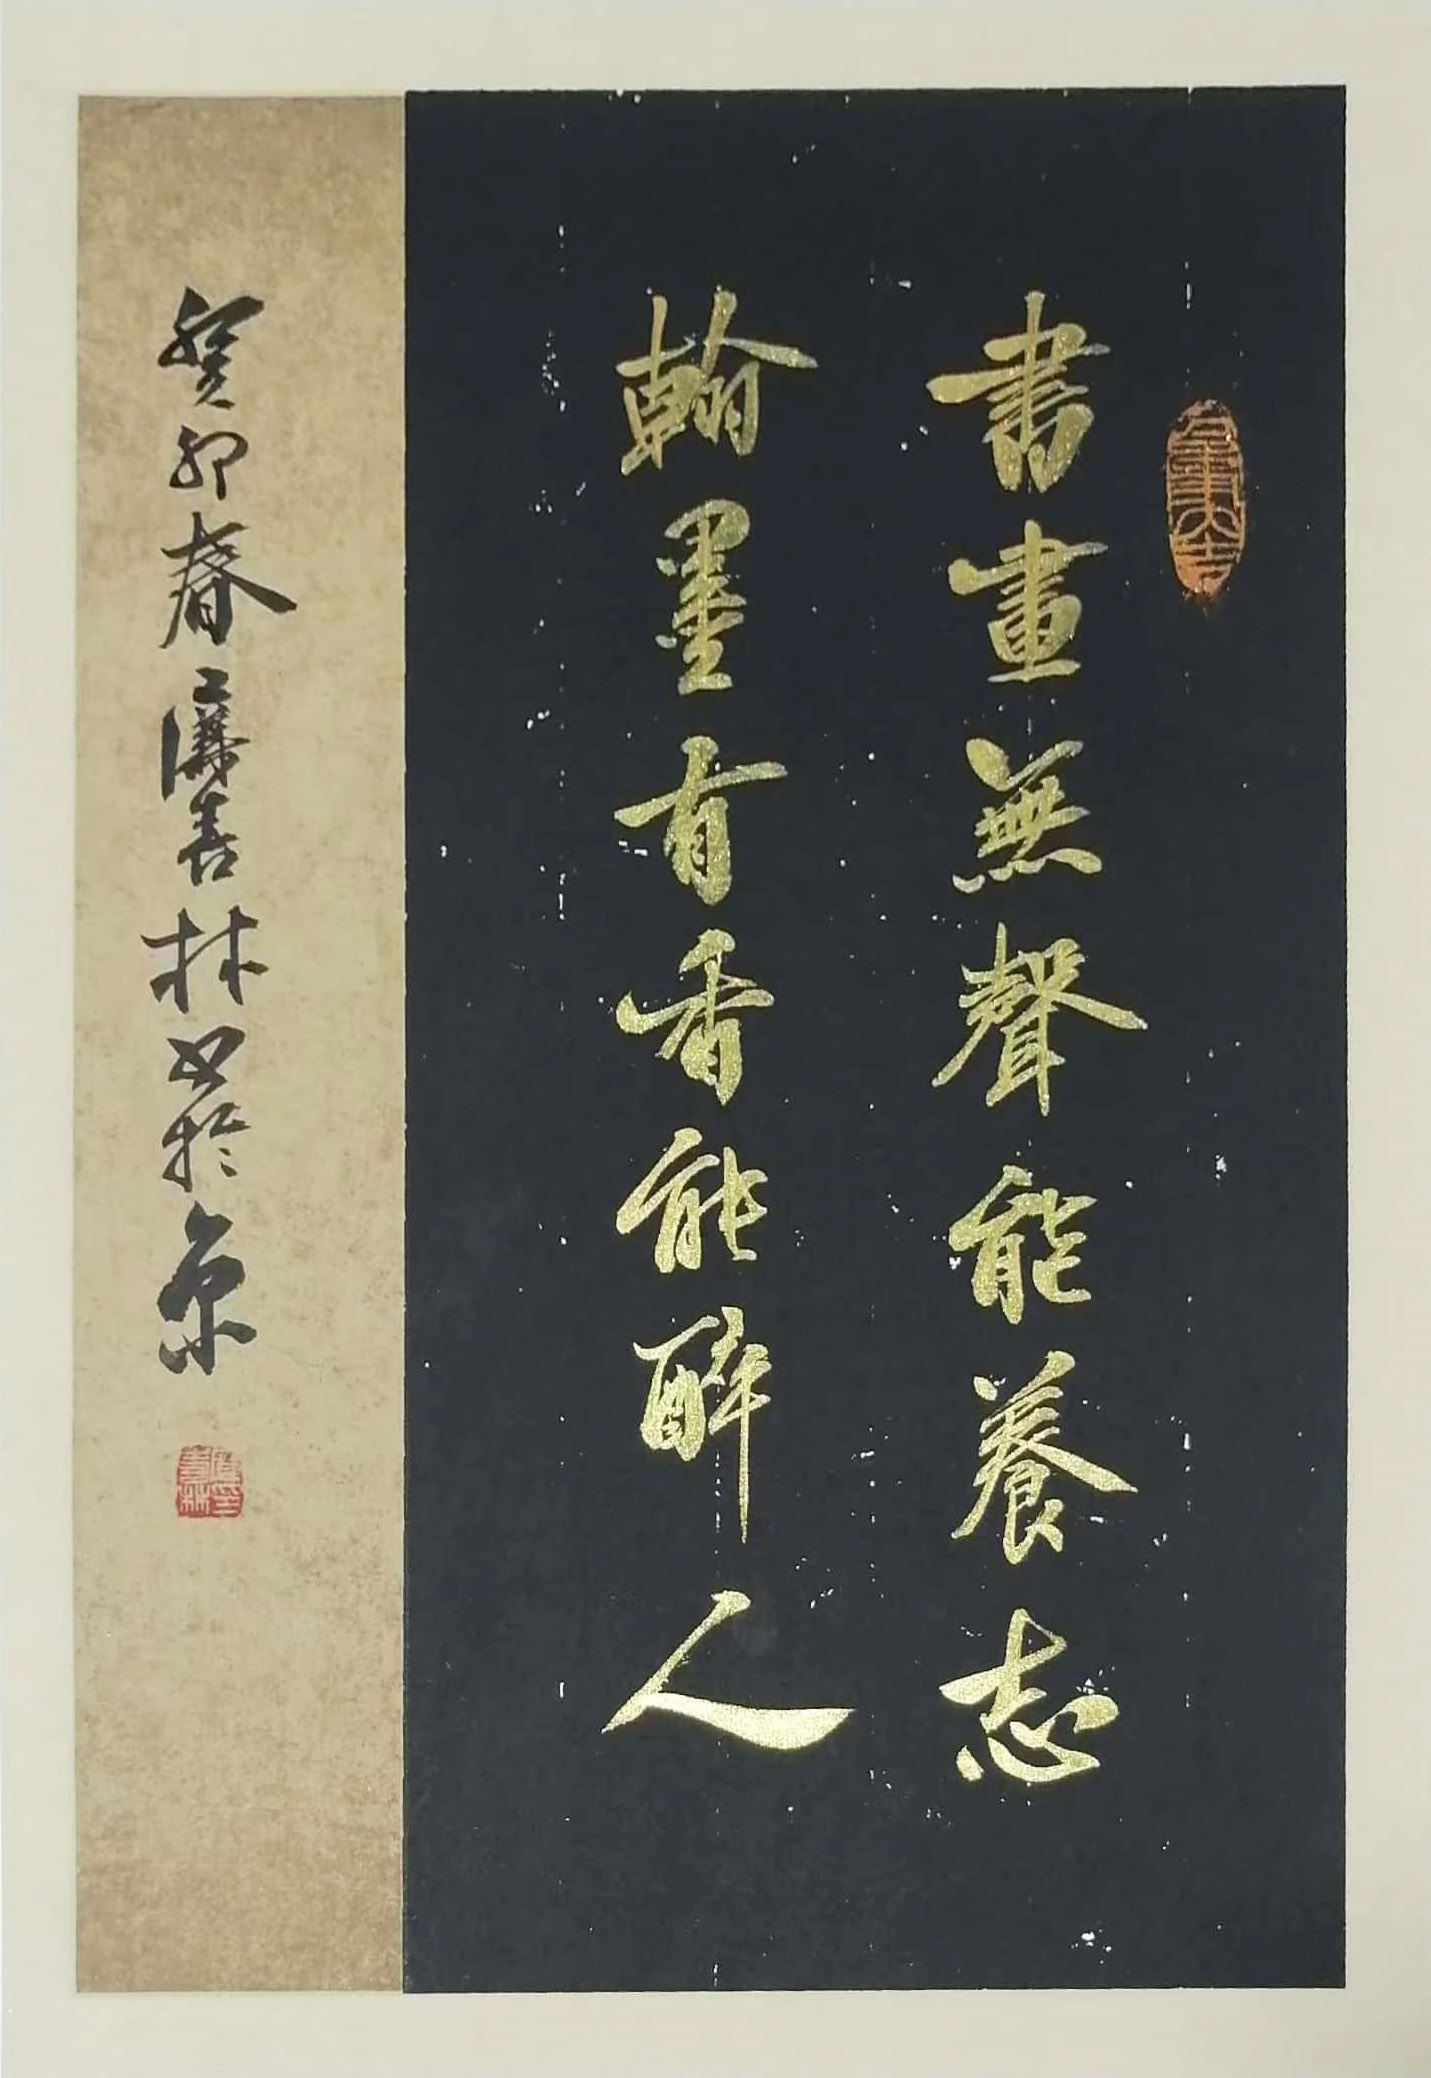 書畫無聲能養志
翰墨有香能醉人
癸卯春 善林書於京
大吉